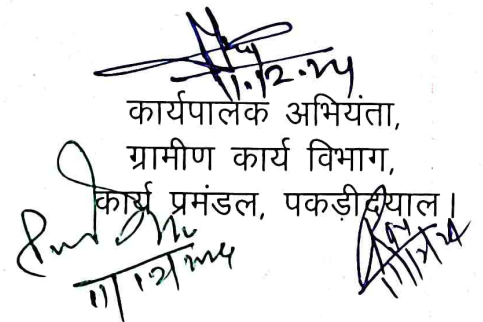 11.12.24
कार्यपालक अभियंता,
ग्रामीण कार्य विभाग,
कार्य प्रमंडल, पकड़ीदयाल।
11/12/2024
11/12/24